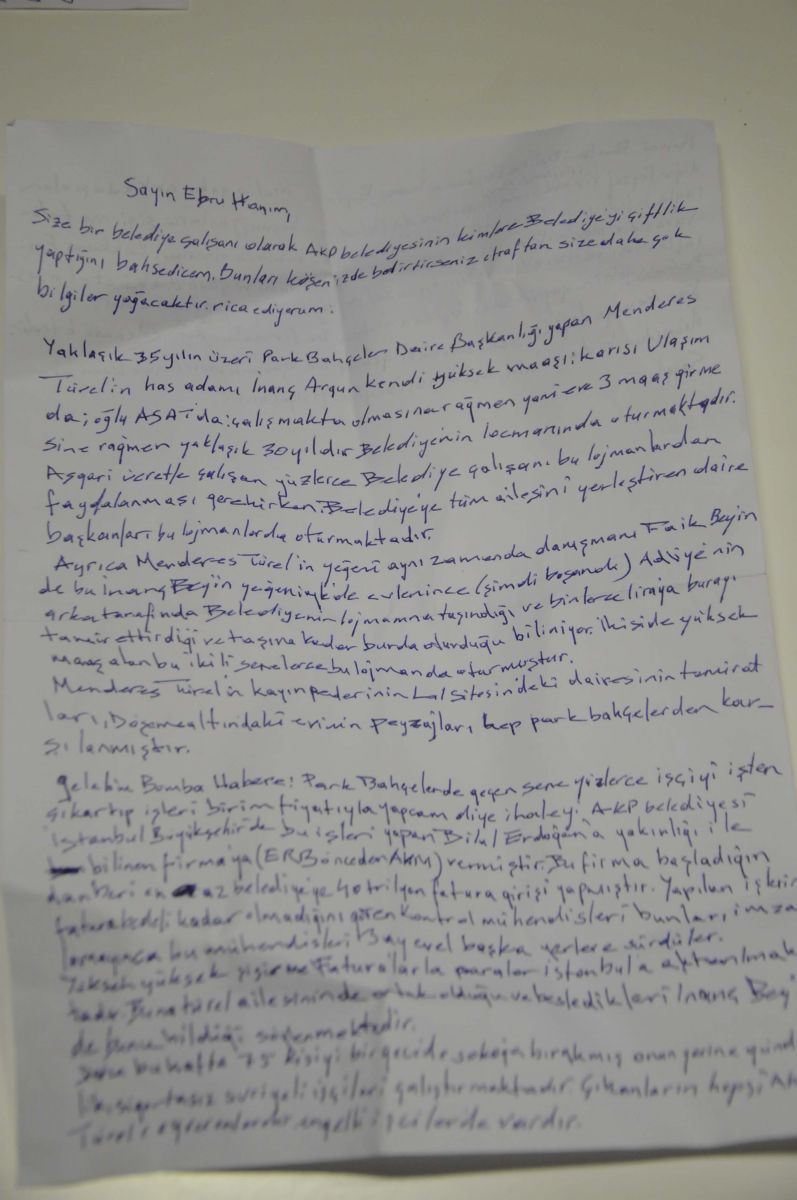 Sayın Ebru Hanım,
Size bir belediye çalışanı olarak AKP belediyesinin kimlere Belediye'yi çiftlik
yaptığını bahsedicem. Bunları köşenizde belirtirseniz etraftan size daha çok
bilgiler yağacaktır. rica ediyorum.
Yaklaşık 35 yılın üzeri Park Bahçeler Daire Başkanlığı yapan Menderes
Türel'in has adamı İnanç Argun kendi yüksek maaşı; karısı Ulaşım
da; oğlu ASAT'da; çalışmakta olmasına rağmen yani eve 3 maaş girme
sine rağmen yaklaşık 30 yıldır Belediye'nin locmanında oturmaktadır.
Asgari ücretle çalışan yüzlerce Belediye çalışanı bu lojmanlardan
faydalanması gerekirken, Belediye'ye tüm ailesini yerleştiren daire
başkanları bu lojmanlarda oturmaktadır.
Ayrıca Menderes Türel'in yeğeni aynı zamanda danışmanı Faik Beyin
de bu İnanç Bey'in yeğeniyle evlenince (şimdi boşandı) Adliye'nin
arka tarafında Belediyenin lojmanına taşındığı ve binlerce liraya burayı
tamir ettirdiği ve taşına kadar burda oturduğu biliniyor. İkiside yüksek
maaş alan bu ikili senelerce bu lojmanda oturmuştur.
Menderes Türel'in kayınpederinin Lal Sitesin'deki dairesinin tamirat
ları, Döşemealtındaki evinin peyzajları hep park bahçelerden kar-
şılanmıştır.
gelelim Bomba Habere! Park Bahçelerde geçen sene yüzlerce işçiyi işten
çıkartıp işleri birim fiyatıyla yapcam diye ihaleyi AKP belediyesi
istanbul Büyükşehir'de bu işleri yapan Bilal Erdoğan'a yakınlığı ile
bilinen firma'ya (ERB önceden AKM) vermiştir. Bu firma başladığın
dan beri en az belediye'ye 40 trilyon fatura girişi yapmıştır. Yapılan işlerin
fatura bedeli kadar olmadığını gören kontrol mühendisleri bunları imza
lamayınca bu mühendisleri Bay evel başka yerlere sürdüler.
Yüksek yüksek şişirme Faturalarla paralar istanbul'a aktarılmak
tadır. Buna türel ailesininde ortak olduğu ve besledikleri İnanç Bey'
de bunu bildiği söylenmektedir.
bu hafta 75 kişiyi bir gecede sokağa bırakmış onun yerine
sigortasız suriyeli işçileri çalıştırmaktadır. Çıkanların hepsi
engelli işçilerde vardır.